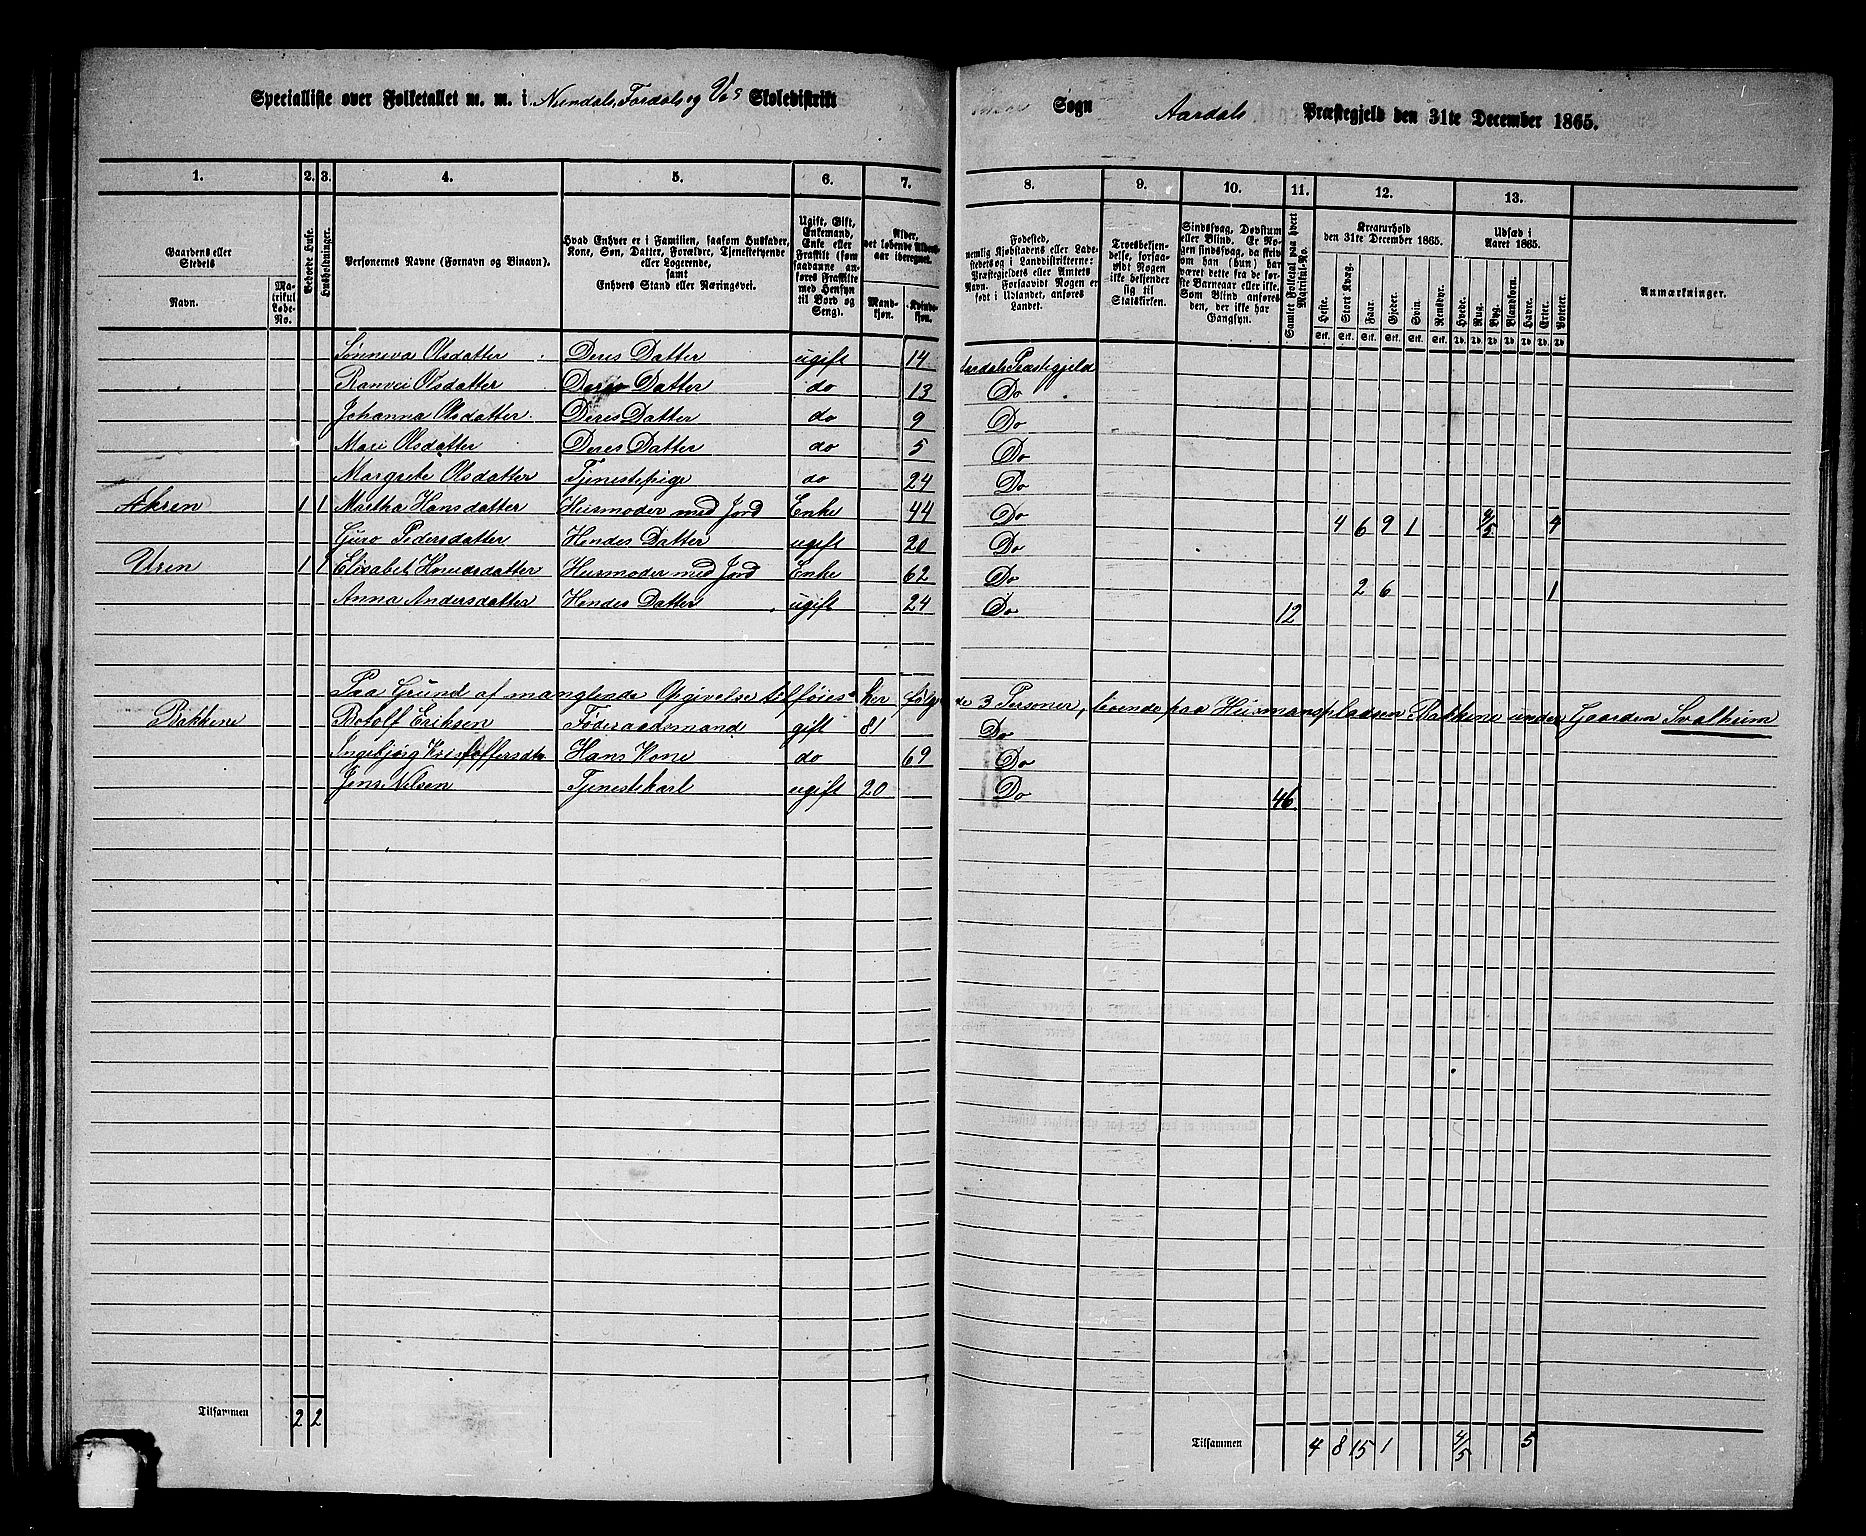 Specialliste over Folketallet m. m. i Nundals, Fardals og Ves Skoledistrikt
Sogn Aardals Præstegjeld den 31te December 1865.
1. 2. 3. 4. 5. 6. 7. 8. 9. 10. 11. 12. 13.
Gaardens eller Stedets
Navn.
Matrikul Løbe-No.
Beboede Huse.
Husholdninger.
Personernes Navne (Fornavn og Binavn).
Hvad Enhver er i Familien, saasom Husfader, Kone, Søn, Datter, Forældre, Tjenestetyende eller Logerende,
samt
Enhvers Stand eller Næringsvei.
Ugift, Gift, Enkemand, Enke eller Fraskilt (som saadanne anføres Fraskilte med Hensyn til Bord og Seng).
Alder, det løbende Alders-aar iberegnet.
Mandkjøn. Kvindekjøn.
Fødested,
nemlig Kjøbstadens eller Ladestedets og i Landdistrikterne: Præstegjeldets eller Amtets Navn. Forsaavidt Nogen er født i Udlandet, anføres Landet.
Troesbekjendelse, forsaavidt Nogen ikke bekjender sig til Statskirken.
Sindssvag, Døvstum eller Blind. Er Nogen sindssvag, da skriv om han (hun) har været dette fra de første Barneaar eller ikke. Som Blind anføres den, der ikke har Gangsyn.
Samlet Folketal paa hvert Matrikul-No.
Kreaturhold
den 31te December 1865.
Heste. Stort Kvæg. Faar. Gjeder. Svin. Rensdyr.
Stk. Stk. Stk. Stk. Stk. Stk.
Udsæd i
Aaret 1865.
Hvede. Rug. Byg. Blandkorn. Havre. Erter. Poteter.
Td. Td. Td. Td. Td. Td. Td.
Anmærkninger.
Sønneva Olsdatter Deres Datter ugift 14 Aardals Præstegjeld
Ranvei Olsdatter Deres Datter do 13 Do
Johanna Olsdatter Deres Datter do 9 Do
Mari Olsdatter Deres Datter do 5 Do
Margrete Olsdatter Tjenestepige do 24 Do
Akren 1 1 Martha Hansdatter Husmoder med Jord Enke 44 Do 4 6 9 1 4/5 4
Guro Pedersdatter Hendes Datter ugift 20 Do
Uren 1 1 Elisabet Knudsdatter Husmoder med Jord Enke 62 Do 2 6 1
Anna Andersdatter Hendes Datter ugift 24 Do 12
Paa Grund af manglende Opgivelse tilføies her følgende 3 Personer, boende paa Husmandspladsen Bakkene under Gaarden Svalheim
Bakkene Botolf Eriksen Føderaadsmand gift 81 Do
Ingebjørg Kristoffersdtr Hans Kone do 69 Do
Jens Nilsen Tjenestekarl ugift 20 Do 46
Tilsammen 2 2
Tilsammen 4 8 15 1 4/5 5